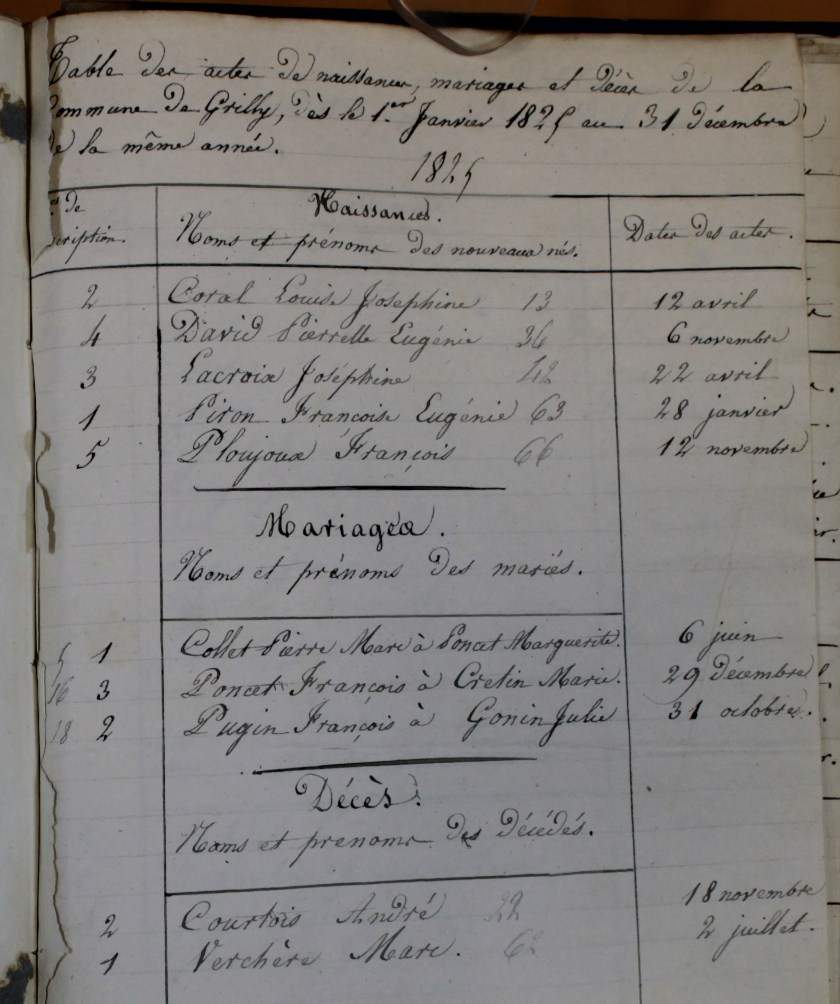 Table des actes de naissances, mariages et décès de la
Commune de Grilly, dès le 1.er Janvier 1825 au 31 décembre
de la même année.
1825
N.o de
scription.
Naissances.
Noms et prénoms des nouveaux nés.
Dates des actes.
2 Coral Louise Josephine 13 12 avril
4 David Pierrette Eugénie 36 6 novembre
3 Lacroix Joséphine 42 22 avril
1 Piron Françoise Eugénie 63 28 janvier
5 Ploujoux François 66 12 novembre
Mariages.
Noms et prénoms des mariés.
5 1 Collet Pierre Marc à Poncet Marguerite. 6 juin
16 3 Poncet François à Cretin Marie. 29 décembre
18 2 Pugin François à Gonin Julie 31 octobre.
Décès.
Noms et prenoms des décédés.
2 Courtois André 22 18 novembre
1 Verchère Marc. 62 2 juillet.